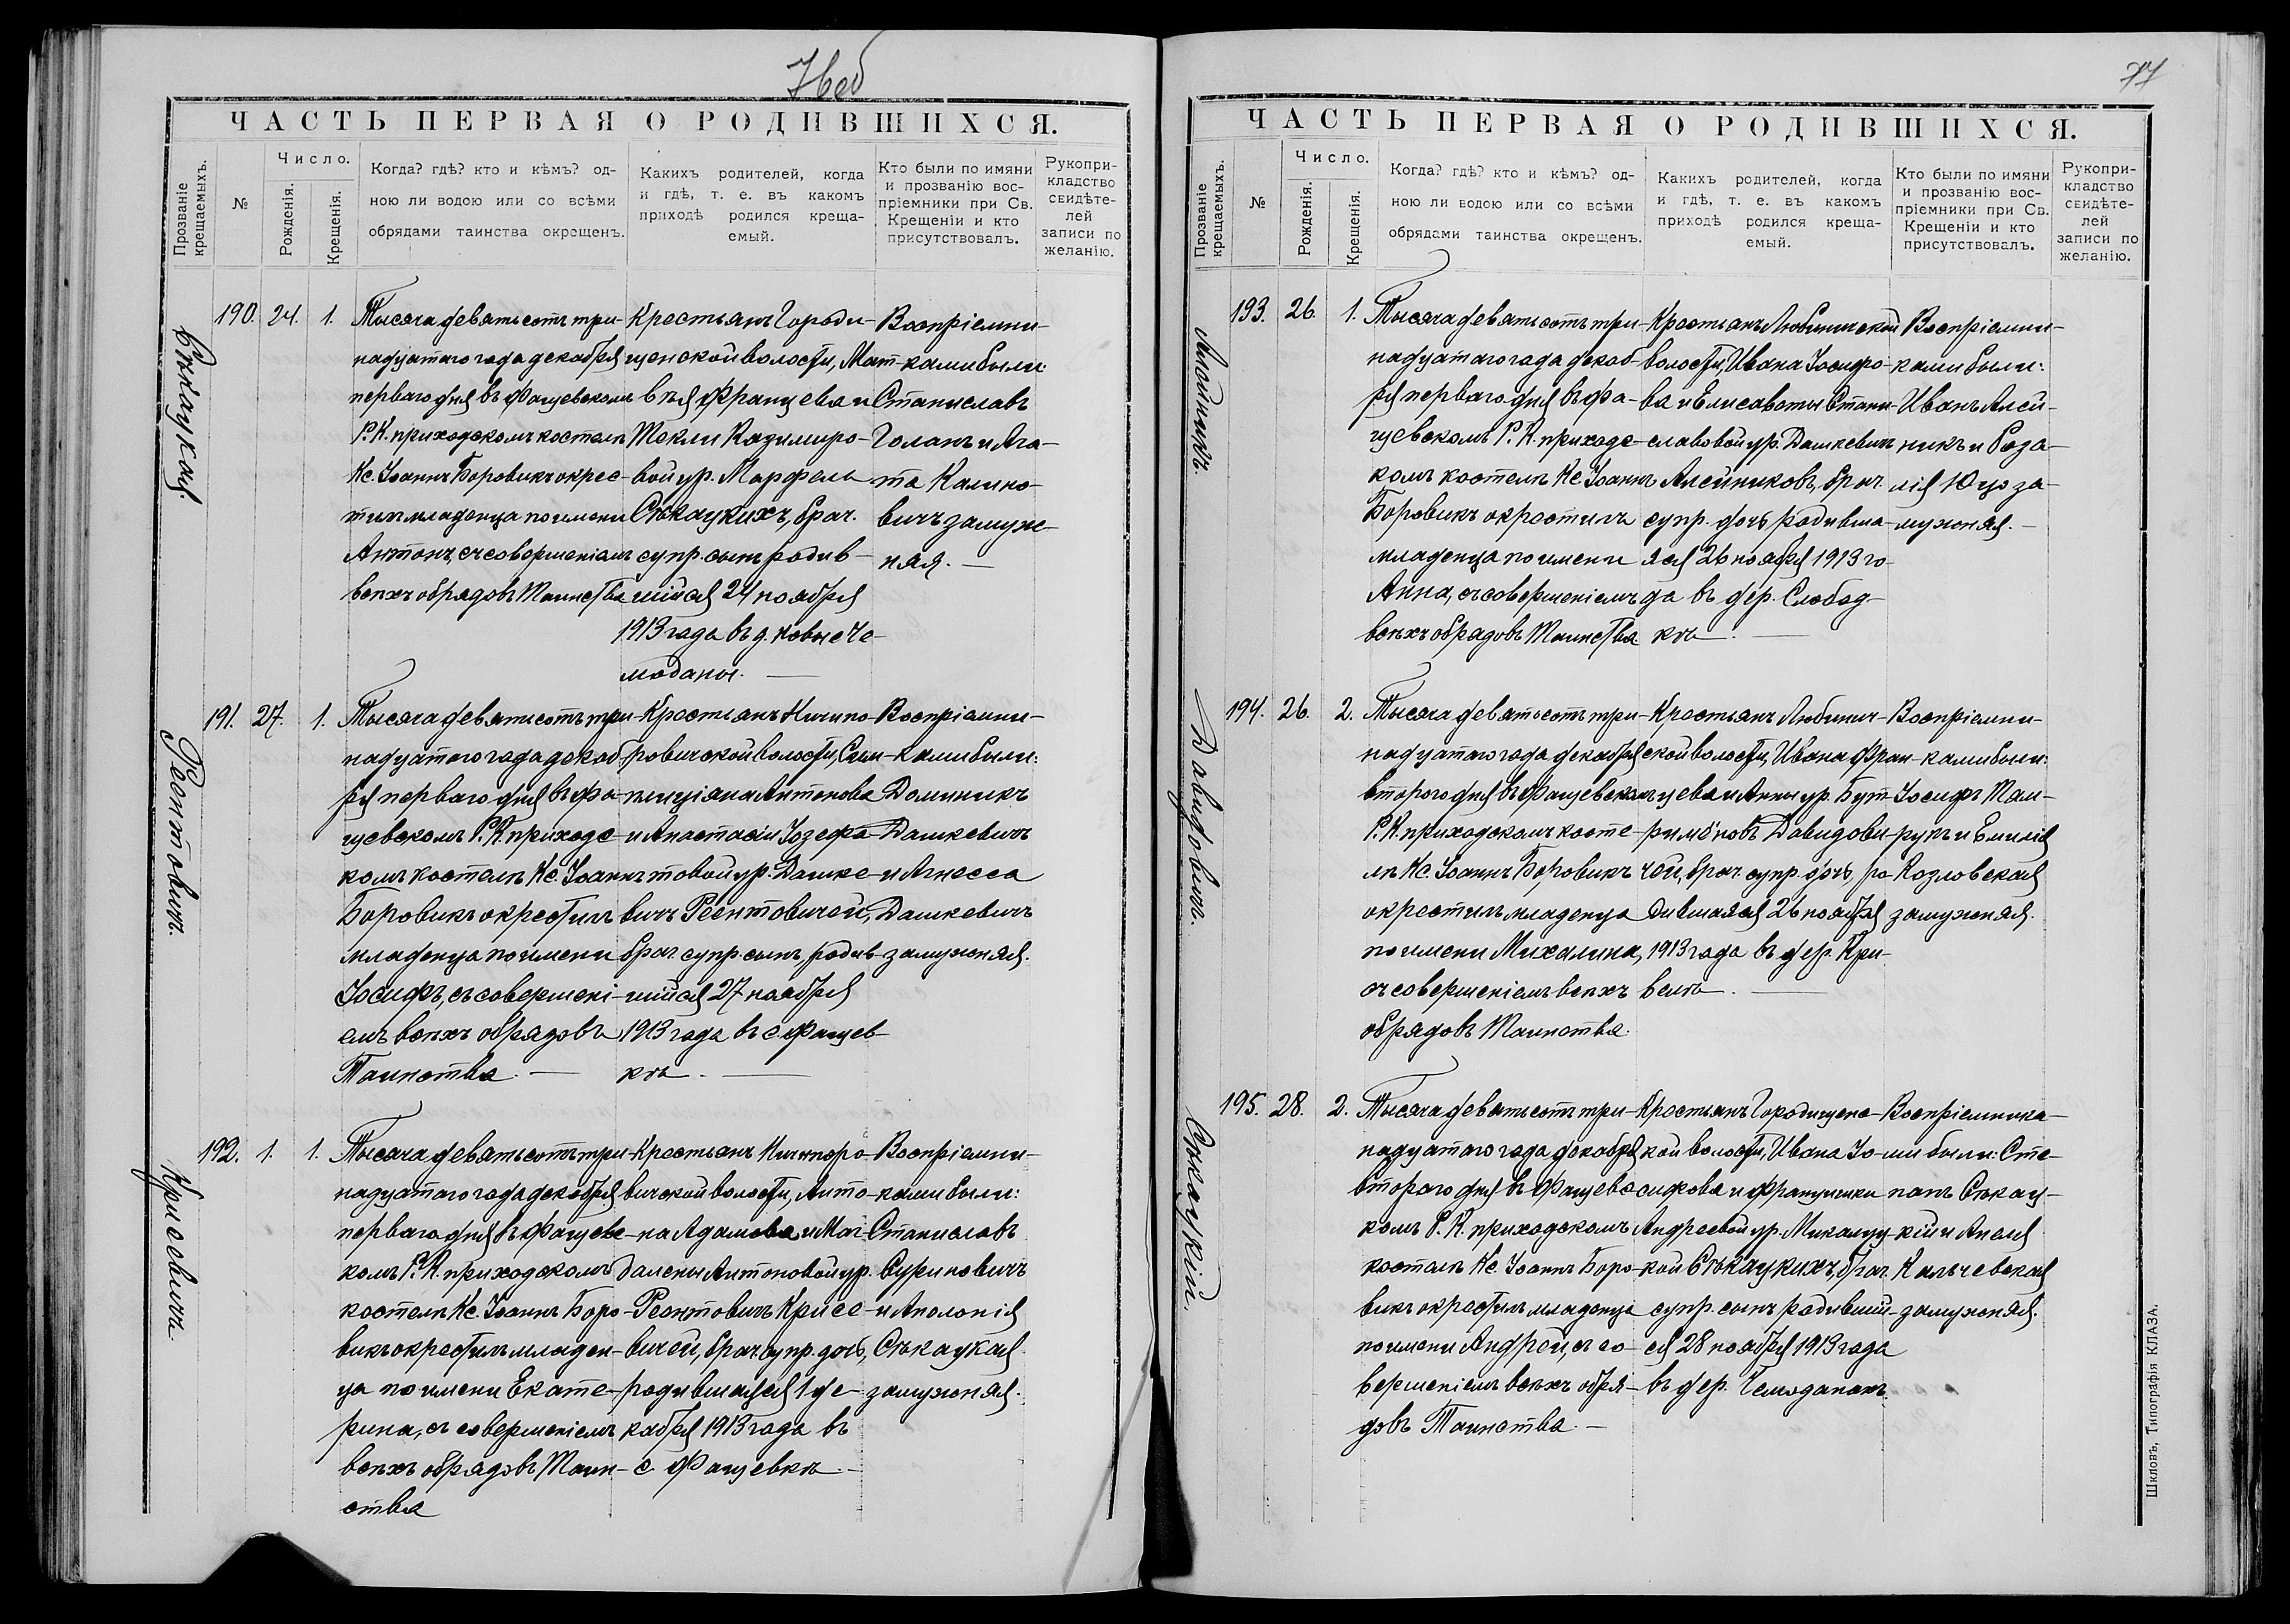 76об
ЧАСТЬ ПЕРВАЯ О РОДИВШИХСЯ.
Прозваніе крещаемыхъ.
№
Число.
Рожденія.
Крещенія.
Когда? гдѣ? кто и кѣмъ? од-
ною ли водою или со всѣми
обрядами таинства окрещенъ.
Какихъ родителей, когда
и гдѣ, т. е. въ какомъ
приходѣ родился креща-
емый.
Кто были по имяни
и прозванію вос-
пріемники при Св.
Крещеніи и кто
присутствовалъ.
Рукопри-
кладство
свидѣте-
лей
записи по
желанію.
190. 24. 1.
Тысяча девятьсотъ три-
надцатаго года декабря
перваго дня въ Фащевскомъ
Р. К. приходскомъ костелѣ
Кс. Іоаннъ Боровикъ окрес-
тилъ младенца по имени
Антонъ, съ совершеніемъ
всѣхъ обрядовъ Таинства
Крестьянъ Городи-
щенской волости, Мат-
вѣя Францева и
Текли Кадимиро-
вой ур. Марфель
Стѣкацкихъ, брач.
супр. сынъ родив-
шійся 24 ноября
1913 года въ д. Новые Че-
моданы.
Воспріемни-
ками были:
Станиславъ
Голанъ и Ага-
та Калино-
вичъ замуж-
няя.
Реентовичъ.
191. 27. 1.
Тысяча девятьсотъ три-
надцатаго года декаб-
ря перваго дня въ Фа-
щевскомъ Р. К. приходс-
комъ костелѣ Кс. Іоаннъ
Боровикъ окрестилъ
младенца по имени
Іосифъ, съ совершені-
емъ всѣхъ обрядовъ
Таинства.
Крестьянъ Ничипо-
ровичской волости, Сим-
плиціяна Антонова
и Анастасіи Іозефа-
товой ур. Дашке-
вичъ Реентовичей,
брач. супр. сынъ, родив-
шійся 27 ноября
1913 года въ с. Фащев-
кѣ.
Воспріемни-
ками были:
Доминикъ
Дашкевичъ
и Агнесса
Дашкевичъ
замужняя.
Крисевичъ
192. 1. 1.
Тысяча девятьсотъ три-
надцатаго года декабря
перваго дня въ Фащевс-
комъ Р. К. приходскомъ
костелѣ Кс. Іоаннъ Боро-
викъ окрестилъ младен-
ца по имени Екате-
рина, съ совершеніемъ
всѣхъ обрядовъ Таин-
ства
Крестьянъ Ничипоро-
вичской волости, Анто-
на Адамова и Маг-
далены Антоновой ур.
Реентовичъ Крисе-
вичей, брач. супр. дочь,
родившаяся 1 де-
кабря 1913 года въ
с. Фащевкѣ.
Воспріемни-
ками были:
Станиславъ
Суриновичъ
и Аполонія
Стѣкацкая
замужняя.
77
ЧАСТЬ ПЕРВАЯ О РОДИВШИХСЯ.
Прозваніе крещаемыхъ.
№
Число.
Рожденія.
Крещенія.
Когда? гдѣ? кто и кѣмъ? од-
ною ли водою или со всѣми
обрядами таинства окрещенъ.
Какихъ родителей, когда
и гдѣ, т. е. въ какомъ
приходѣ родился креща-
емый.
Кто были по имяни
и прозванію вос-
пріемники при Св.
Крещеніи и кто
присутствовалъ.
Рукопри-
кладство
свидѣте-
лей
записи по
желанію.
193. 26. 1.
Тысяча девятьсотъ три-
надцатаго года декаб-
ря перваго дня въ Фа-
щевскомъ Р. К. приходс-
комъ костелѣ Кс Іоаннъ
Боровикъ окрестилъ
младенца по имени
Анна, съ совершеніемъ
всѣхъ обрядовъ Таинства
Крестьянъ Любиничской
волости, Ивана Іосифо-
ва и Елисаветы Стани-
славовой ур. Дашкевичъ
Алейниковъ, брач.
супр. дочь родивша-
яся 26 ноября 1913 го-
да въ дер. Слобод-
кѣ.
Воспріемни-
ками были:
Иванъ Алей-
никъ и Роза-
лія Юцо за-
мужняя.
Давидовичъ.
194. 26. 2.
Тысяча девятьсотъ три-
надцатаго года декабря
второго дня въ Фащевскомъ
Р. К. приходскомъ косте-
лѣ Кс. Іоаннъ Боровикъ
окрестилъ младенца
по имени Михалина,
съ совершеніемъ всѣхъ
обрядовъ Таинства.
Крестьянъ Любинич-
ской волости, Ивана Фран-
цева и Анны ур. Бут-
римовъ Давидови-
чей, брач. супр. дочь, ро-
дившаяся 26 ноября
1913 года въ дер. Кри-
велѣ.
Воспріемни-
ками были:
Іосифъ Там-
рукъ и Емилія
Козловская
замужняя.
Стѣкацкій.
195. 28. 2.
Тысяча девятьсотъ три-
надцатаго года декабря
второго дня въ Фащевс-
комъ Р. К. приходскомъ
костелѣ Кс. Іоаннъ Боро-
викъ окрестилъ младенца
по имени Андрей, съ со-
вершеніемъ всѣхъ обря-
довъ Таинства.
Крестьянъ Городищенс-
кой волости, Ивана Іо-
сифова и Францишки
Андреевой ур. Микалуц-
кой Стѣкацкихъ, брач.
супр. сынъ родивший-
ся 28 ноября 1913 года
въ дер. Чемоданахъ.
Воспріемника-
ми были: Сте-
панъ Стѣкац-
кій и Анеля
Кальчевская
замужняя.
Шкловъ, Типографія КЛАЗА.